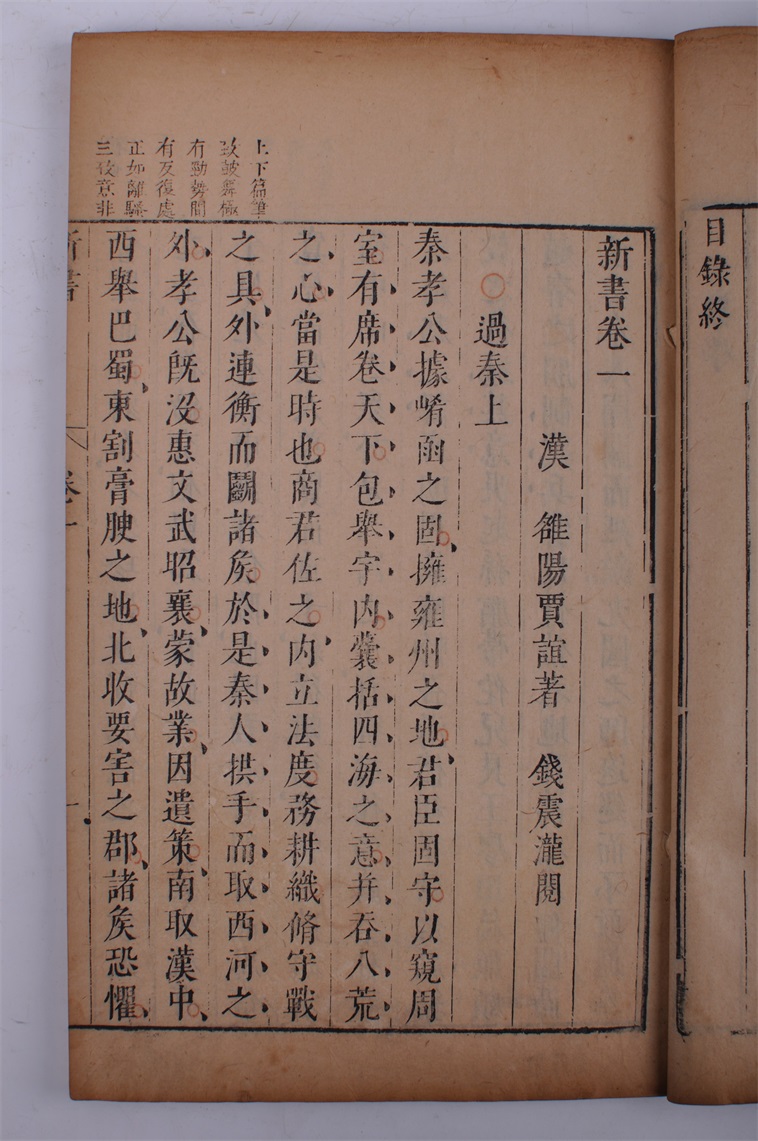 目錄終
新書卷一
漢 雒陽賈誼著 錢震瀧閱
過秦上
秦孝公據崤函之固擁雍州之地君臣固守以窺周
室有席卷天下包舉宇內囊括四海之意并吞八荒
之心當是時也商君佐之內立法度務耕織脩守戰
之具外連衡而鬭諸矦於是秦人拱手而取西河之
外孝公旣沒惠文武昭襄蒙故業因遺策南取漢中
西舉巴蜀東割膏腴之地北收要害之郡諸矦恐懼
上下篇筆
致鼓舞極
有勁勢間
有反復處
正如離騷
三致意非
新書
卷一
一